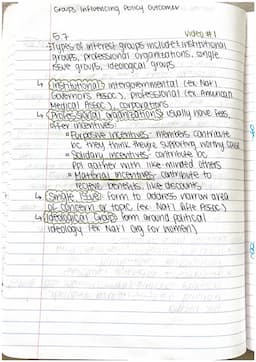 Groups Influencing Policy Outcomes
5.7 Video #1
Types of interest groups include: institutional
groups, professional organizations, single
issue groups, ideological groups
↳ Institutional: intergovernmental (ex: Nat'l
Governors Assoc), professional (ex: American
Medical Assoc), corporations
↳ Professional organizations: usually have fees,
offer incentives
• Purposive incentives: members contribute
bc they think they're supporting worthy cause
• Solidary incentives: contribute bc
gather with like minded others
• Material incentives: contribute to
receive benefits like discounts
↳ Single issue: form to address narrow area
of concern or topic (ex: Nat'l Rifle Assoc)
↳ Ideological Groups: form around political
ideology (ex: Nat'l Org for Women)